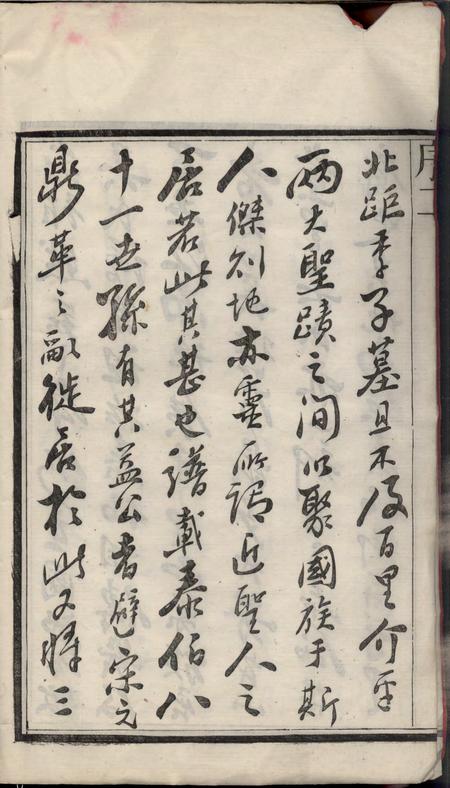 序二
北距季子墓且不及百里介乎
兩大聖蹟之间以聚國族于斯
人傑則地亦靈所謂近聖人之
居若此其甚也譜載泰伯八
十一世孫有其益公者避宋元
鼎革之亂徙居於此又將三